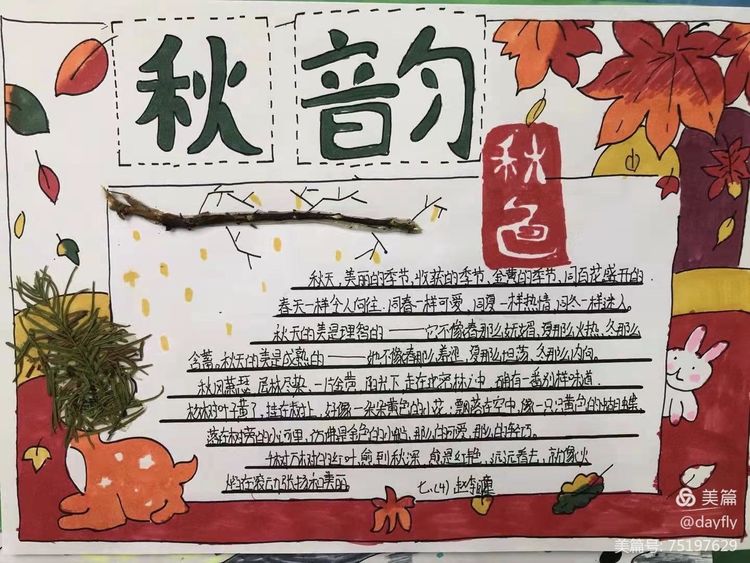 秋韵
秋色
秋天,美丽的季节,收获的季节,金黄的季节,同百花盛开的
春天一样令人向往,同春一样可爱,同夏一样热情,同冬一样迷人。
秋天的美是理智的——它不像春那么妩媚,夏那么火热,冬那么
含蓄。秋天的美是成熟的——她不像春那么羞涩,夏那么坦荡,冬那么内向。
秋风萧瑟,层林尽染,一片金黄,阳光下,走在北密林之中,拥有一番别样味道.
树叶子黄了,挂在树上,好像一朵朵黄色的小花,飘落在空中,像一只只黄色的蝴蝶,
落在树旁的小河里,仿佛是金色的小船,那么的可爱,那么的轻巧。
树万树的红叶,愈到秋深,愈是红艳,远远看去,就像火
焰在滚动,张扬和美丽。
七、(4) 赵李
美篇
@dayfly
美篇号: 75197629